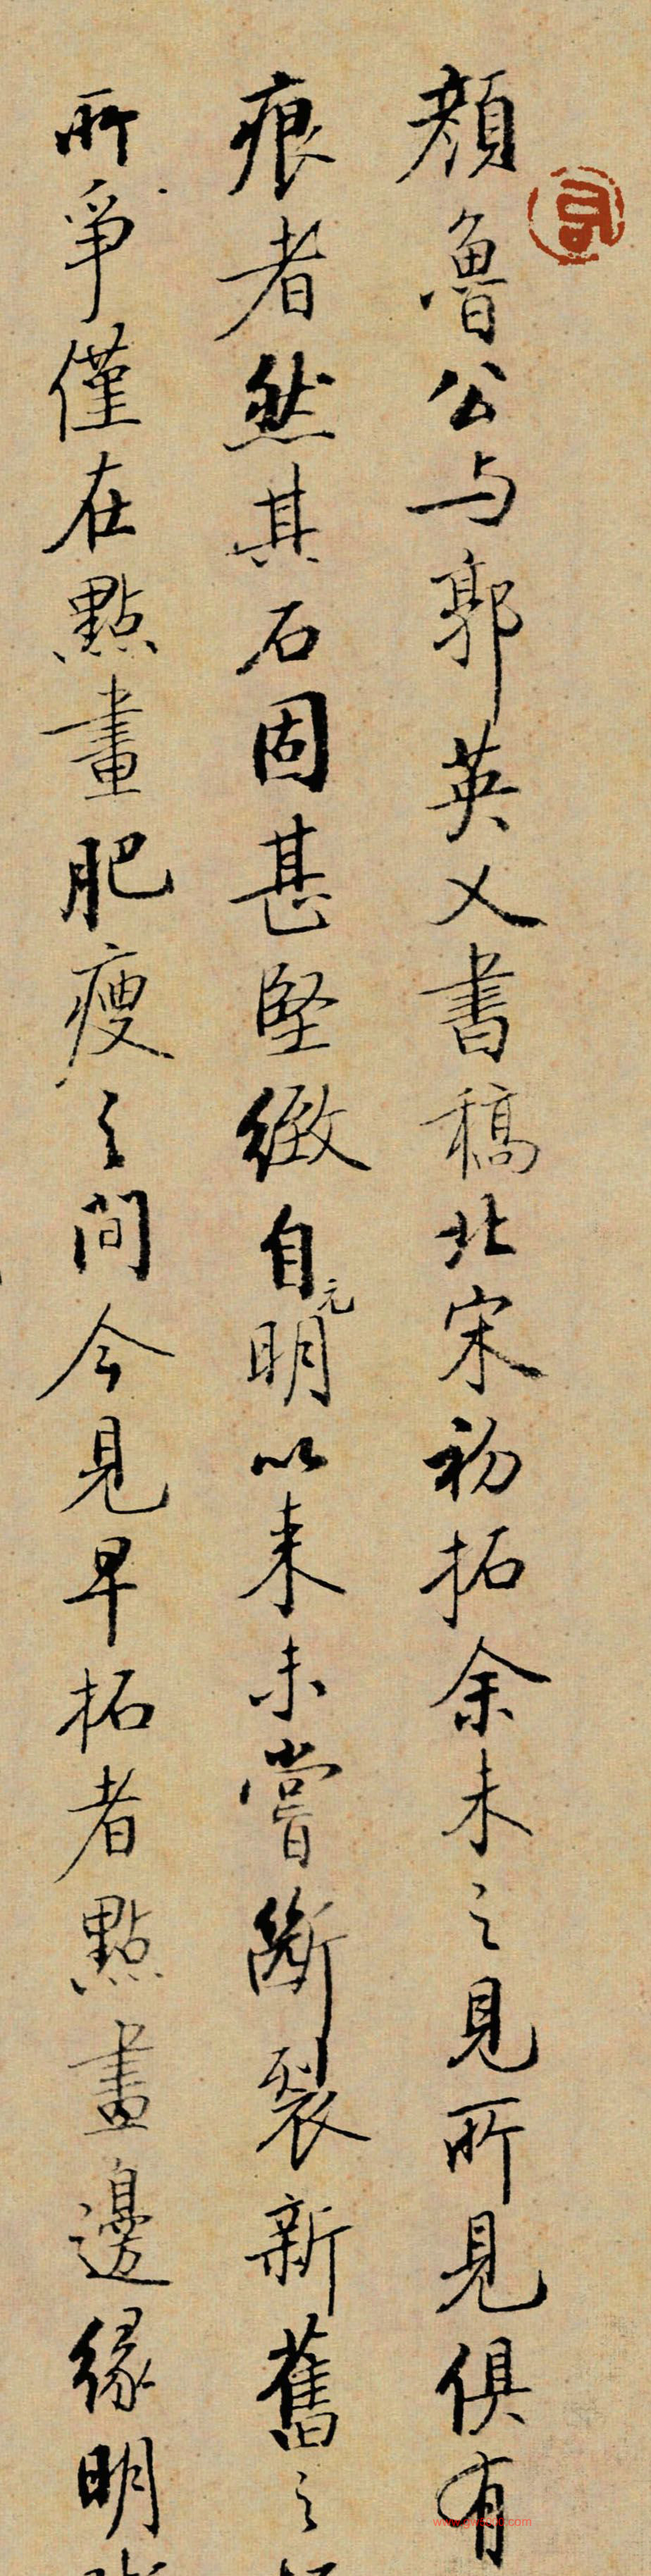 顏魯公与郭英乂書稿北宋初拓余未之見所見俱有
痕者然其石固甚堅緻自元明以来未嘗斷裂新舊之
所爭僅在點畫肥瘦之间今見早拓者點畫邊緣明